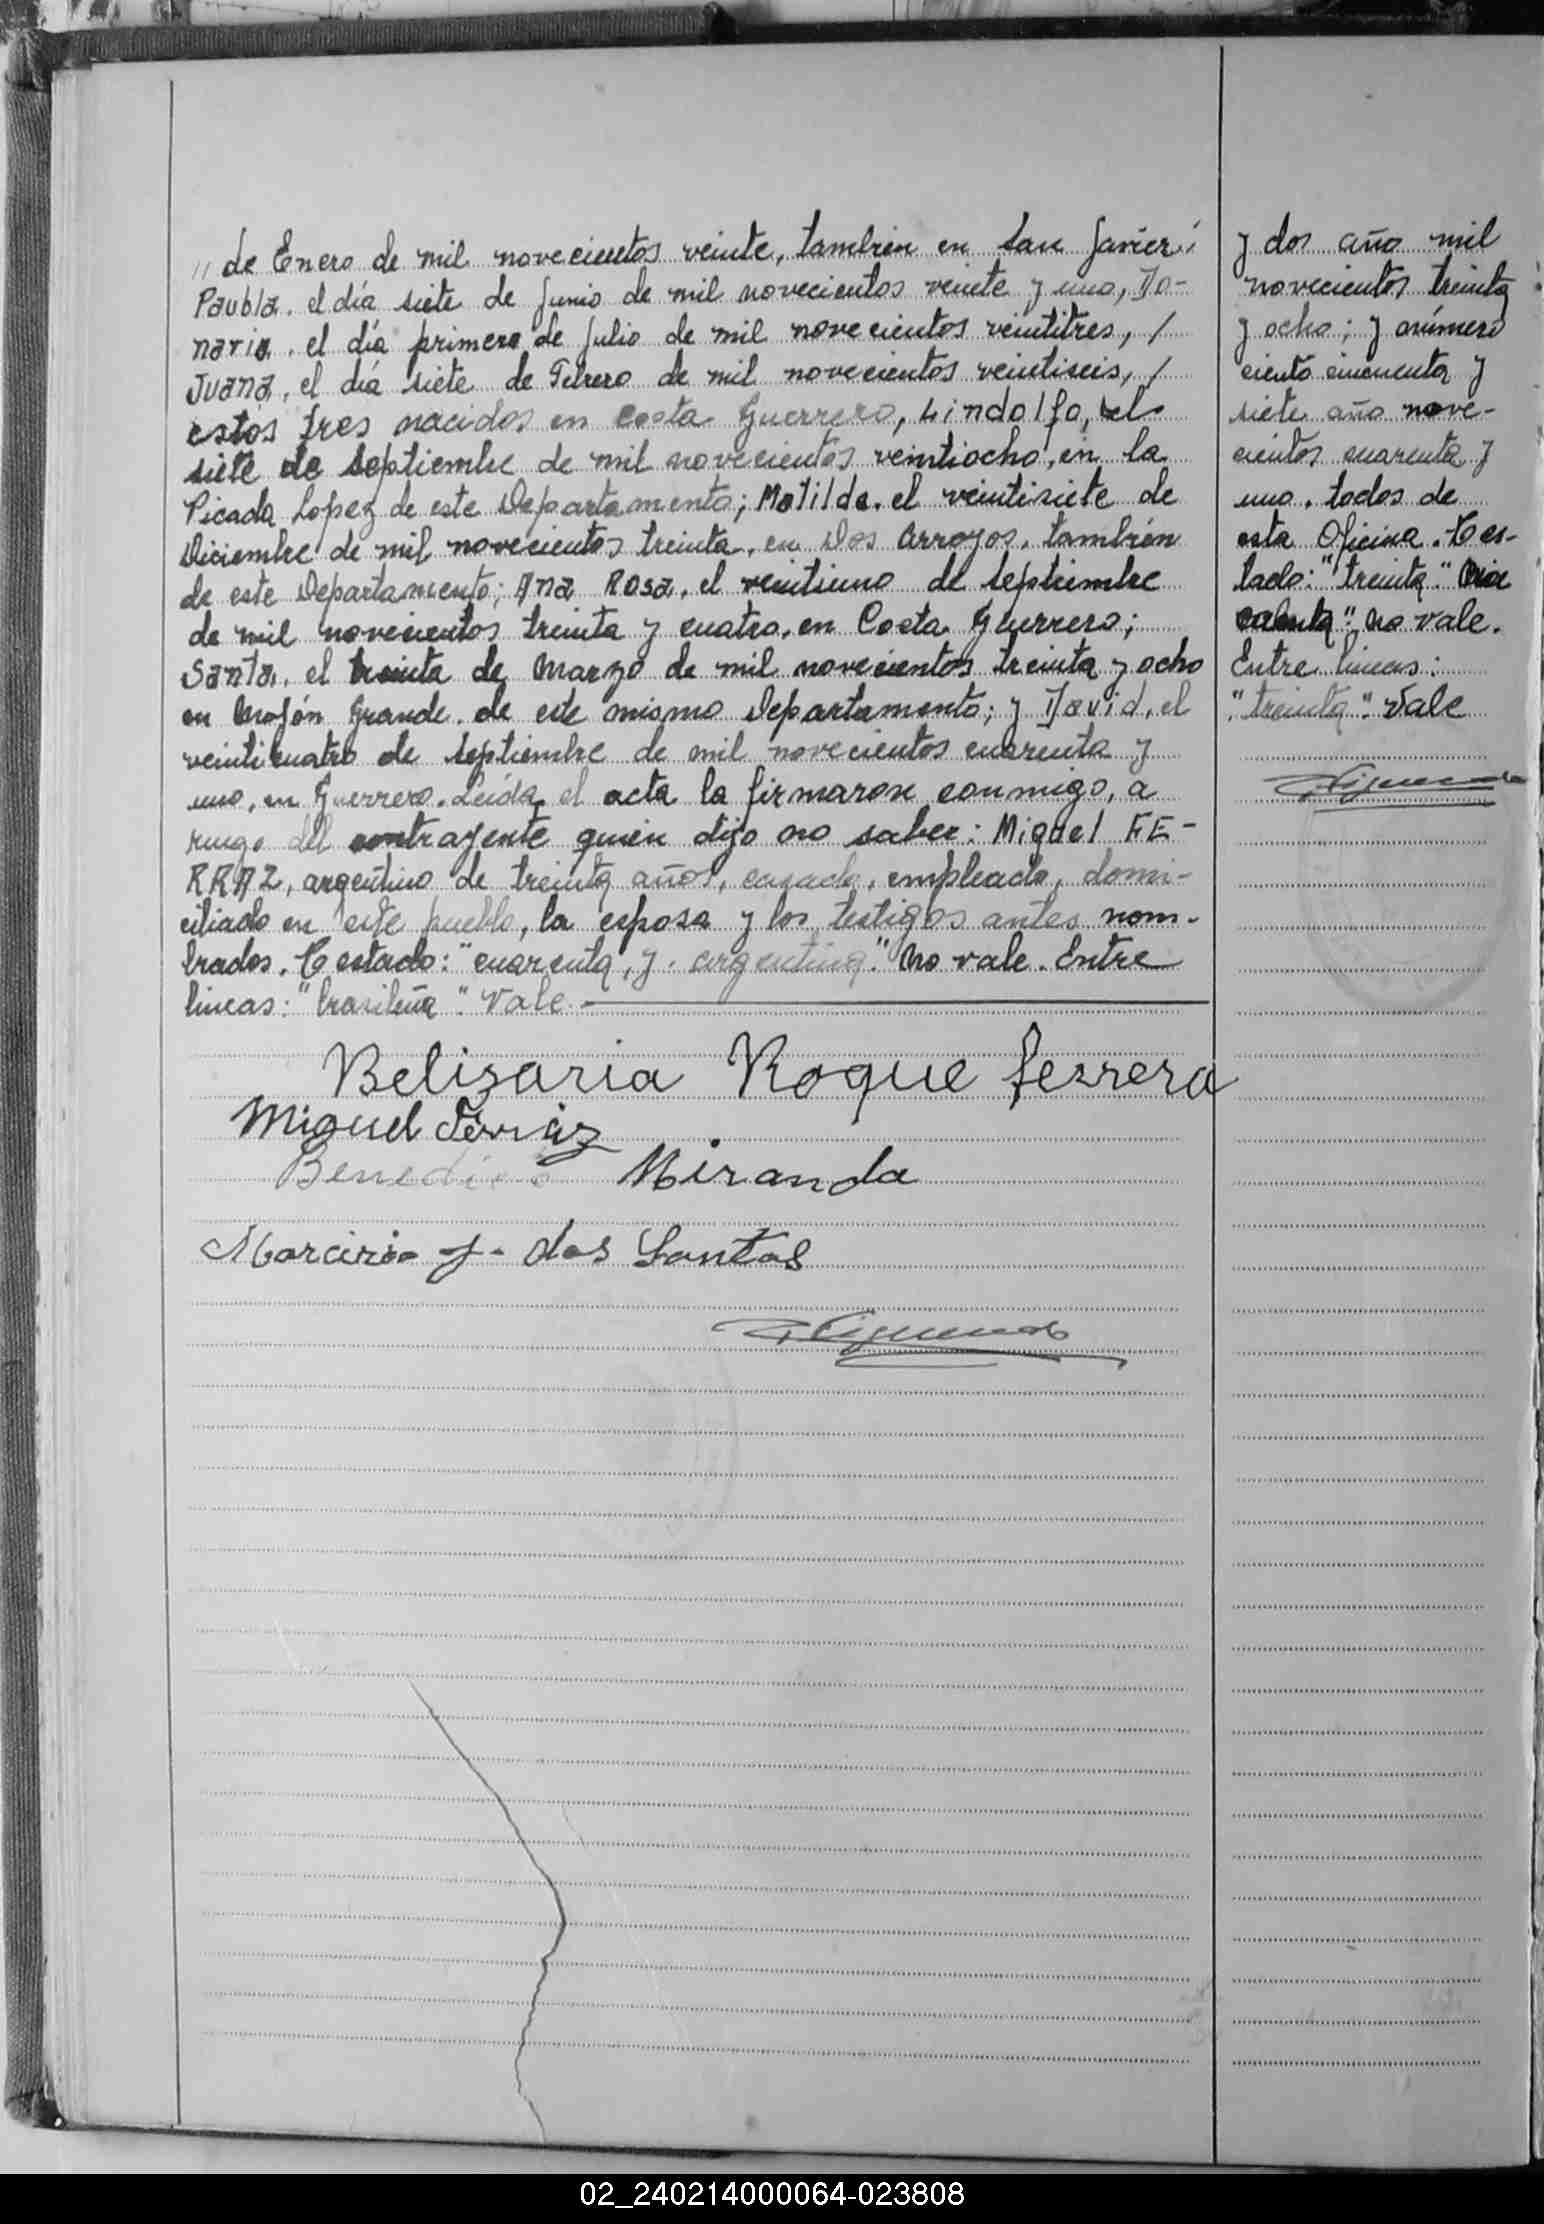 " de Enero de mil novecientos veinte, también en San Javier;
Paubla, el día siete de Junio de mil novecientos veinte y uno, Do-
naria, el día primero de Julio de mil novecientos veintitres, /
Juana, el día siete de Febrero de mil novecientos veintiseis, /
estos tres nacidos en Costa Guerrero, Lindolfo, el
siete de Septiembre de mil novecientos veintiocho, en la
Picada Lopez de este Departamento; Matilde, el veintisiete de
Diciembre de mil novecientos treinta, en Dos Arroyos, también
de este Departamento; Ana Rosa, el veintiuno de Septiembre
de mil novecientos treinta y cuatro, en Costa Guerrero;
Santa, el treinta de Marzo de mil novecientos treinta y ocho
en Mojón Grande, de este mismo Departamento; y David, el
veinticuatro de Septiembre de mil novecientos cuarenta y
uno, en Guerrero. Leída el acta la firmaron conmigo, a
ruego del contrayente quién dijo no saber: Miguel FE-
RRAZ, argentino de treinta años, casado, empleado, domi-
ciliado en este pueblo, la esposa y los testigos antes nom-
brados. Testado: "cuarenta, y. argentina". No vale. Entre
lineas: "brasileña". Vale.
Belisaria Roque ferrera
Miguel Ferraz
Benedicto Miranda
Marcirio J. dos Santos
y dos año mil
novecientos treinta
y ocho; y número
ciento cincuenta y
siete año nove-
cientos cuarenta y
uno, todos de
esta Oficina. Tes-
tado: "treinta"
No vale.
Entre lineas:
"treinta". Vale
02_240214000064-023808